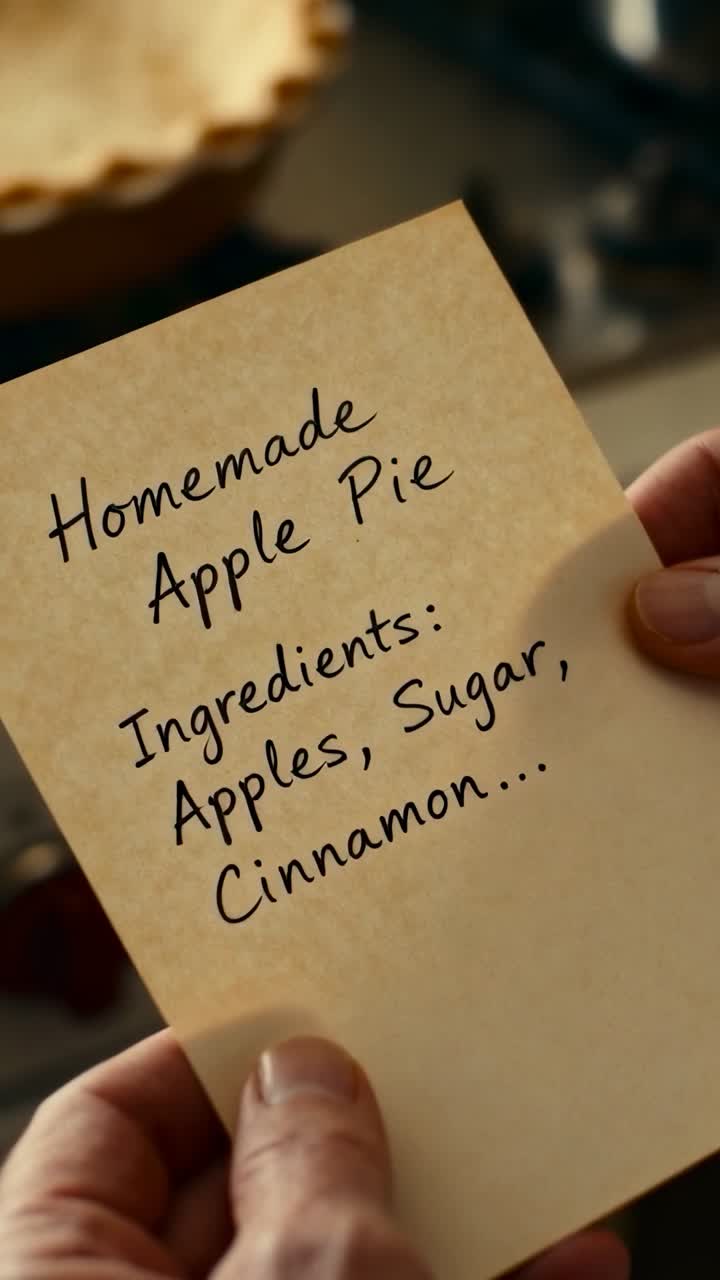 Homemade
Apple Pie
Ingredients:
Apples, Sugar,
Cinnamon...